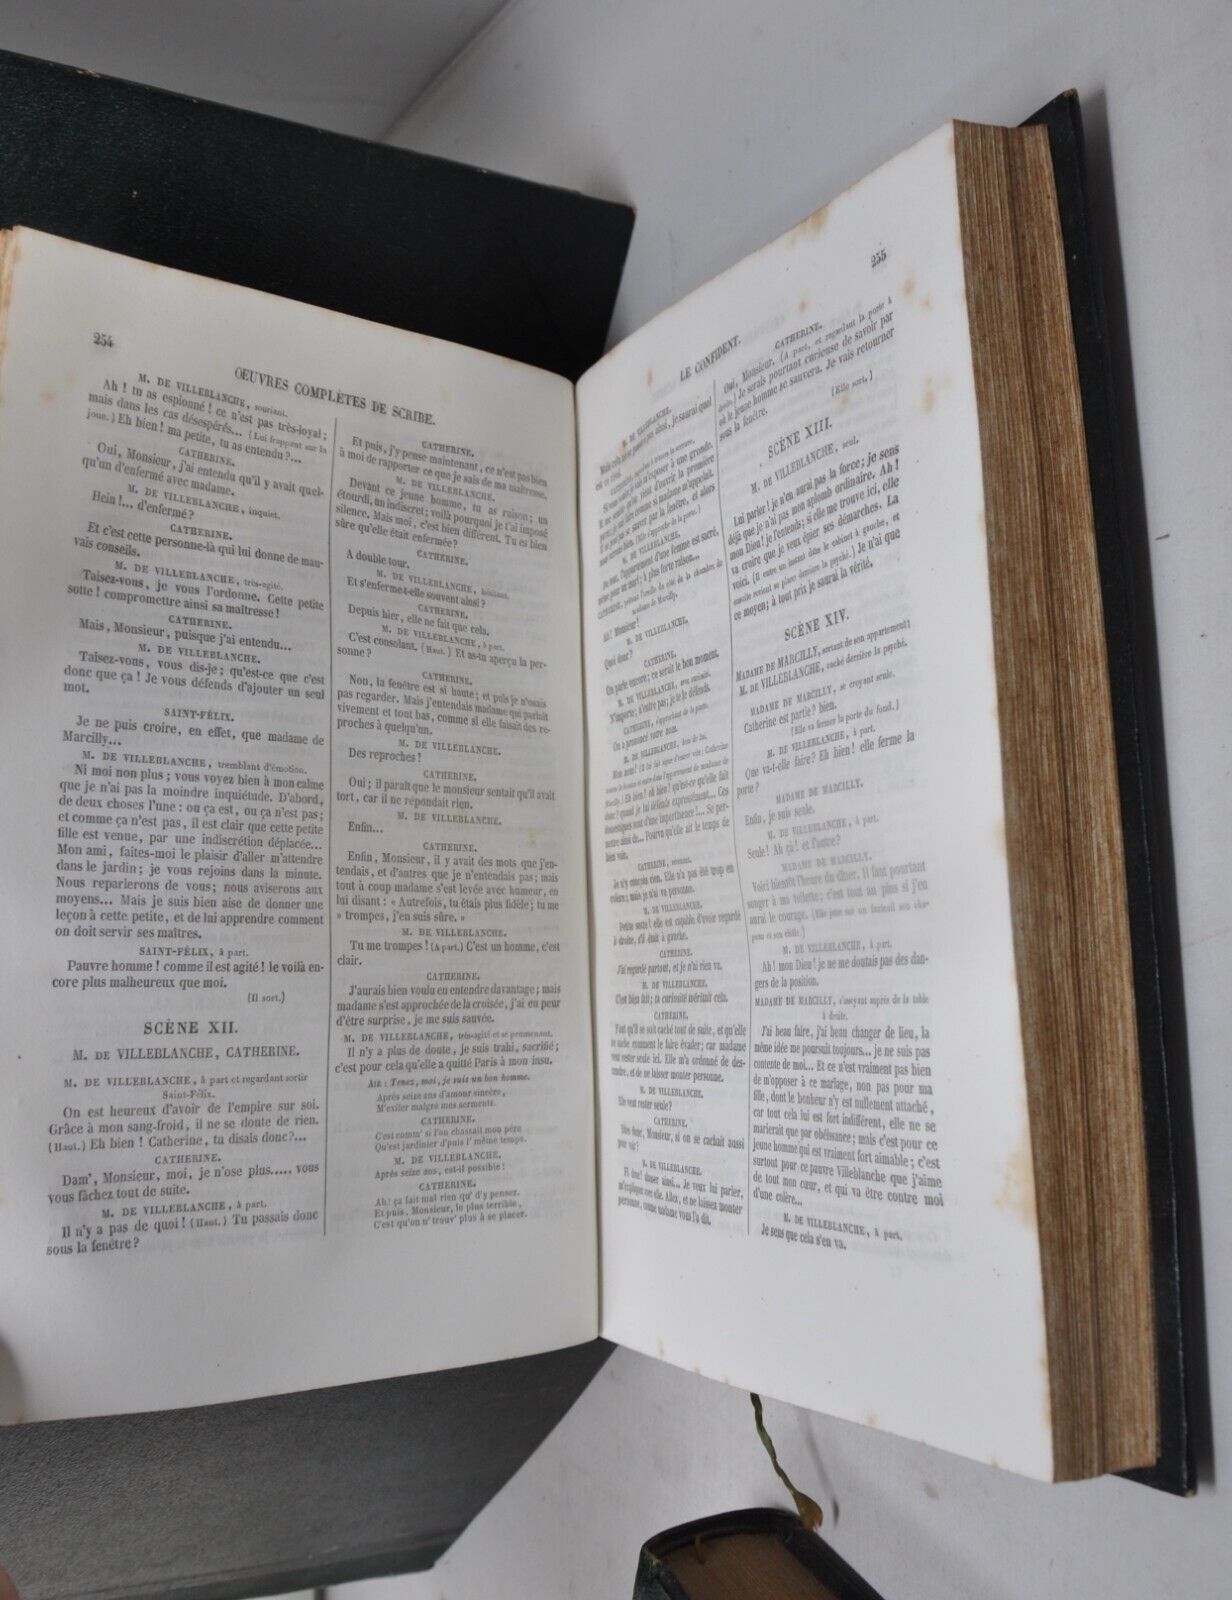 254
OEUVRES COMPLÈTES DE SCRIBE.
M. DE VILLEBLANCHE, souriant.
Ah ! tu as espionné ! ce n'est pas très-loyal ;
mais dans les cas désespérés... (Lui frappant sur la
joue.) Eh bien ! ma petite, tu as entendu ?...
CATHERINE.
Oui, Monsieur, j'ai entendu qu'il y avait quel-
qu'un d'enfermé avec madame.
M. DE VILLEBLANCHE, inquiet.
Hein !... d'enfermé ?
CATHERINE.
Et c'est cette personne-là qui lui donne de mau-
vais conseils.
M. DE VILLEBLANCHE, très-agité.
Taisez-vous, je vous l'ordonne. Cette petite
sotte ! compromettre ainsi sa maîtresse !
CATHERINE.
Mais, Monsieur, puisque j'ai entendu...
M. DE VILLEBLANCHE.
Taisez-vous, vous dis-je ; qu'est-ce que c'est
donc que ça ! Je vous défends d'ajouter un seul
mot.
SAINT-FÉLIX.
Je ne puis croire, en effet, que madame de
Marcilly...
M. DE VILLEBLANCHE, tremblant d'émotion.
Ni moi non plus ; vous voyez bien à mon calme
que je n'ai pas la moindre inquiétude. D'abord,
de deux choses l'une : ou ça est, ou ça n'est pas ;
et comme ça n'est pas, il est clair que cette petite
fille est venue, par une indiscrétion déplacée...
Mon ami, faites-moi le plaisir d'aller m'attendre
dans le jardin ; je vous rejoins dans la minute.
Nous reparlerons de vous ; nous aviserons aux
moyens... Mais je suis bien aise de donner une
leçon à cette petite, et de lui apprendre comment
on doit servir ses maîtres.
SAINT-FÉLIX, à part.
Pauvre homme ! comme il est agité ! le voilà en-
core plus malheureux que moi.
(Il sort.)
SCÈNE XII.
M. DE VILLEBLANCHE, CATHERINE.
M. DE VILLEBLANCHE, à part et regardant sortir
Saint-Félix.
On est heureux d'avoir de l'empire sur soi.
Grâce à mon sang-froid, il ne se doute de rien.
(Haut.) Eh bien ! Catherine, tu disais donc ?...
CATHERINE.
Dam', Monsieur, moi, je n'ose plus..... vous
vous fâchez tout de suite.
M. DE VILLEBLANCHE, à part.
Il n'y a pas de quoi ! (Haut.) Tu passais donc
sous la fenêtre ?
CATHERINE.
Et puis, j'y pense maintenant, ce n'est pas bien
à moi de rapporter ce que je sais de ma maîtresse.
M. DE VILLEBLANCHE.
Devant ce jeune homme, tu as raison ; un
étourdi, un indiscret ; voilà pourquoi je t'ai imposé
silence. Mais moi, c'est bien différent. Tu es bien
sûre qu'elle était enfermée ?
CATHERINE.
A double tour.
M. DE VILLEBLANCHE, hésitant.
Et s'enferme-t-elle souvent ainsi ?
CATHERINE.
Depuis hier, elle ne fait que cela.
M. DE VILLEBLANCHE, à part.
C'est consolant. (Haut.) Et as-tu aperçu la per-
sonne ?
CATHERINE.
Non, la fenêtre est si haute ; et puis je n'osais
pas regarder. Mais j'entendais madame qui parlait
vivement et tout bas, comme si elle faisait des re-
proches à quelqu'un.
M. DE VILLEBLANCHE.
Des reproches !
CATHERINE.
Oui ; il paraît que le monsieur sentait qu'il avait
tort, car il ne répondait rien.
M. DE VILLEBLANCHE.
Enfin...
CATHERINE.
Enfin, Monsieur, il y avait des mots que j'en-
tendais, et d'autres que je n'entendais pas ; mais
tout à coup madame s'est levée avec humeur, en
lui disant : « Autrefois, tu étais plus fidèle ; tu me
» trompes, j'en suis sûre. »
M. DE VILLEBLANCHE.
Tu me trompes ! (A part.) C'est un homme, c'est
clair.
CATHERINE.
J'aurais bien voulu en entendre davantage ; mais
madame s'est approchée de la croisée, j'ai eu peur
d'être surprise, je me suis sauvée.
M. DE VILLEBLANCHE, très-agité et se promenant.
Il n'y a plus de doute, je suis trahi, sacrifié ;
c'est pour cela qu'elle a quitté Paris à mon insu.
AIR : Tenez, moi, je suis un bon homme.
Après seize ans d'amour sincère,
M'exiler malgré mes serments.
CATHERINE.
C'est comm' si l'on chassait mon père
Qu'est jardinier d'puis l' même temps.
M. DE VILLEBLANCHE.
Après seize ans, est-il possible !
CATHERINE.
Ah! ça fait mal rien qu' d'y penser.
Et puis, Monsieur, le plus terrible,
C'est qu'on n' trouv' plus à se placer.
LE CONFIDENT.
255
M. DE VILLEBLANCHE.
CATHERINE,
M. DE VILLEBLANCHE.
De tout, l'appartement d'une femme est sacré,
même pour un mari ; à plus forte raison...
Ah ! Monsieur !
M. DE VILLEBLANCHE.
Quoi donc ?
CATHERINE.
On parle encore ; ce serait le bon moment.
M. DE VILLEBLANCHE,
N'importe ; n'entre pas ; je te le défends.
CATHERINE,
On a prononcé votre nom.
M. DE VILLEBLANCHE, hors de lui.
CATHERINE,
Je n'y conçois rien. Elle n'a pas été trop en
colère ; mais je n'ai vu personne.
M. DE VILLEBLANCHE.
Petite sotte ! elle est capable d'avoir regardé
à droite, s'il était à gauche.
CATHERINE.
J'ai regardé partout, et je n'ai rien vu.
M. DE VILLEBLANCHE.
C'est bien fait ; ta curiosité méritait cela.
CATHERINE.
Faut qu'il se soit caché tout de suite, et qu'elle
ne sache comment le faire évader ; car madame
veut rester seule ici. Elle m'a ordonné de des-
cendre, et de ne laisser monter personne.
M. DE VILLEBLANCHE.
Elle veut rester seule ?
CATHERINE.
Dites donc, Monsieur, si on se cachait aussi
pour voir ?
M. DE VILLEBLANCHE.
Fi donc ! ruser ainsi... Je veux lui parler,
m'expliquer avec elle. Allez, et ne laissez monter
personne, comme madame vous l'a dit.
CATHERINE.
Oui, Monsieur. (A part, et regardant la porte à
droite.) Je serais pourtant curieuse de savoir par
où le jeune homme se sauvera. Je vais retourner
sous la fenêtre.
(Elle sort.)
SCÈNE XIII.
M. DE VILLEBLANCHE, seul.
Lui parler ! je n'en aurai pas la force ; je sens
déjà que je n'ai pas mon aplomb ordinaire. Ah !
mon Dieu ! je l'entends ; si elle me trouve ici, elle
va croire que je veux épier ses démarches. La
voici. (Il entre un instant dans le cabinet à gauche, et
ensuite revient se placer derrière la psyché.) Je n'ai que
ce moyen ; à tout prix je saurai la vérité.
SCÈNE XIV.
MADAME DE MARCILLY, sortant de son appartement ;
M. DE VILLEBLANCHE, caché derrière la psyché.
MADAME DE MARCILLY, se croyant seule.
Catherine est partie ? bien.
(Elle va fermer la porte du fond.)
M. DE VILLEBLANCHE, à part.
Que va-t-elle faire ? Eh bien ! elle ferme la
porte ?
MADAME DE MARCILLY.
Enfin, je suis seule.
M. DE VILLEBLANCHE, à part.
Seule ! Ah çà ! et l'autre ?
MADAME DE MARCILLY.
Voici bientôt l'heure du dîner. Il faut pourtant
songer à ma toilette ; c'est tout au plus si j'en
aurai le courage. (Elle jette sur un fauteuil son cha-
peau et son châle.)
M. DE VILLEBLANCHE, à part.
Ah ! mon Dieu ! je ne me doutais pas des dan-
gers de la position.
MADAME DE MARCILLY, s'asseyant auprès de la table
à droite.
J'ai beau faire, j'ai beau changer de lieu, la
même idée me poursuit toujours... je ne suis pas
contente de moi... Et ce n'est vraiment pas bien
de m'opposer à ce mariage, non pas pour ma
fille, dont le bonheur n'y est nullement attaché,
car tout cela lui est fort indifférent, elle ne se
marierait que par obéissance ; mais c'est pour ce
jeune homme qui est vraiment fort aimable ; c'est
surtout pour ce pauvre Villeblanche que j'aime
de tout mon cœur, et qui va être contre moi
d'une colère...
M. DE VILLEBLANCHE, à part.
Je sens que cela s'en va.